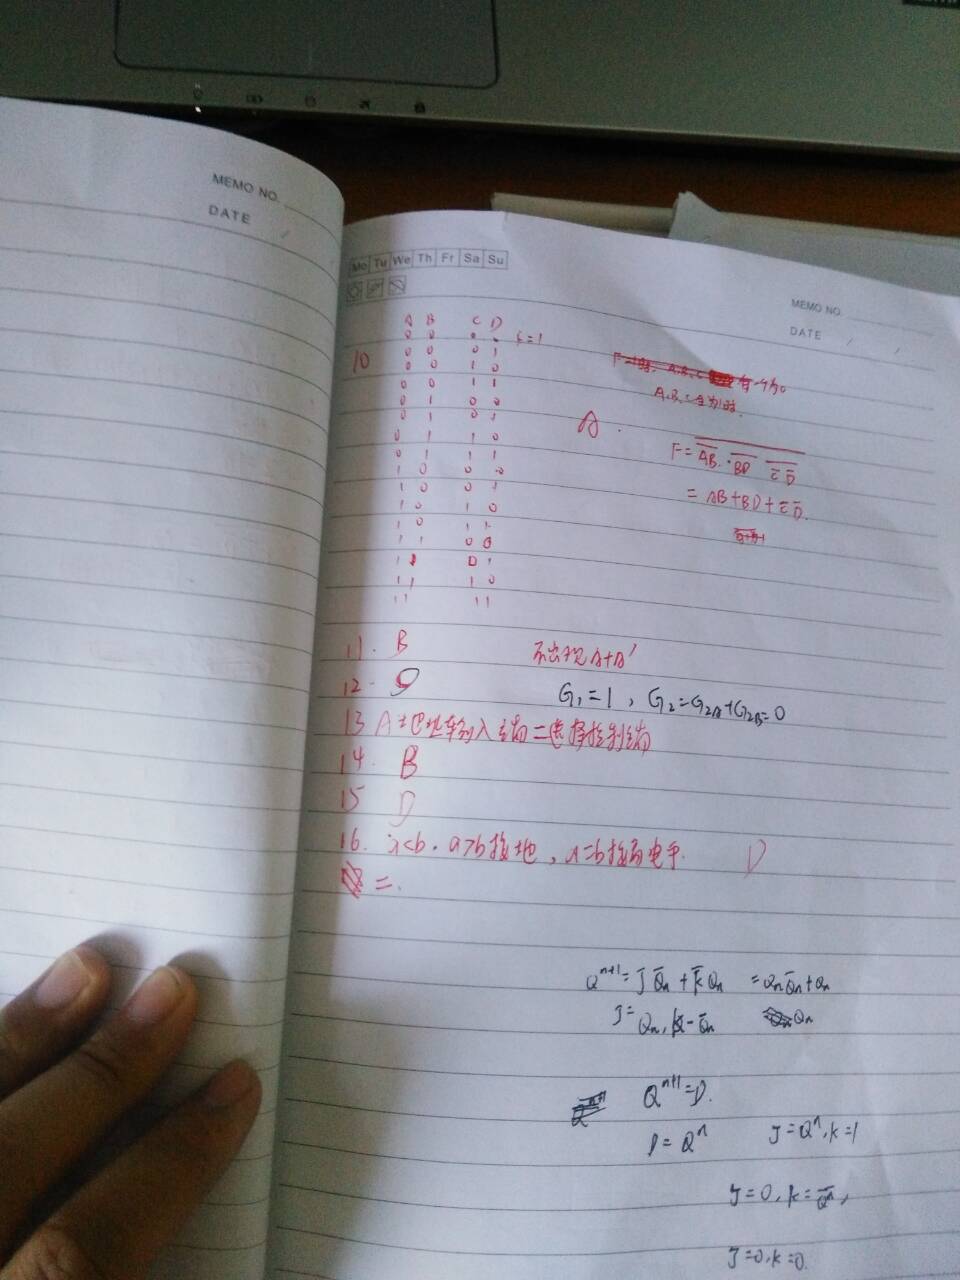 MEMO NO.
DATE
Mo Tu We Th Fr Sa Su
MEMO NO.
DATE
A B C D
0 0
0 0 0 1
10 0 0 1 0
0 0 1 1
0 1 0 0
0 1 0 1
0 1 1 0
0 1 1 1
1 0 0 0
1 0 0 1
1 0 1 0
1 0 1 1
1 1 0 0
1 1 0 1
1 1 1 0
1 1 1 1
A.B.C全为1时.
A.
F=\overline{\overline{AB}·\overline{BD} \overline{\bar{C}\bar{D}}}
=AB+BD+\bar{C}\bar{D}.
11. B 不出现A+A'
12. G₁=1, G₂=G₂A+G₂B=0
13 A=地址输入端=选择控制端
14. B
15 D
16. a<b. a>b接地, a=b接高电平. D
二.
Qⁿ⁺¹=J\bar{Q}n+\bar{K}Qn =Qn\bar{Q}n+Qn
J=Qn, K=\bar{Q}n Qn
Qⁿ⁺¹=D.
D=Qⁿ J=Qⁿ,K=1
J=0,K=\bar{Q}ⁿ,
J=0,K=0.